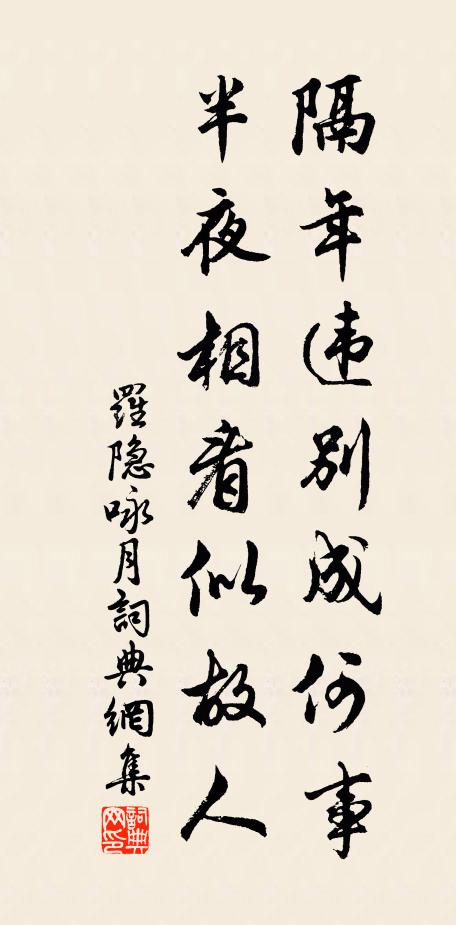 隔年违別成何事
半夜相看似故人
羅隐咏月詞典網集
詞典网印